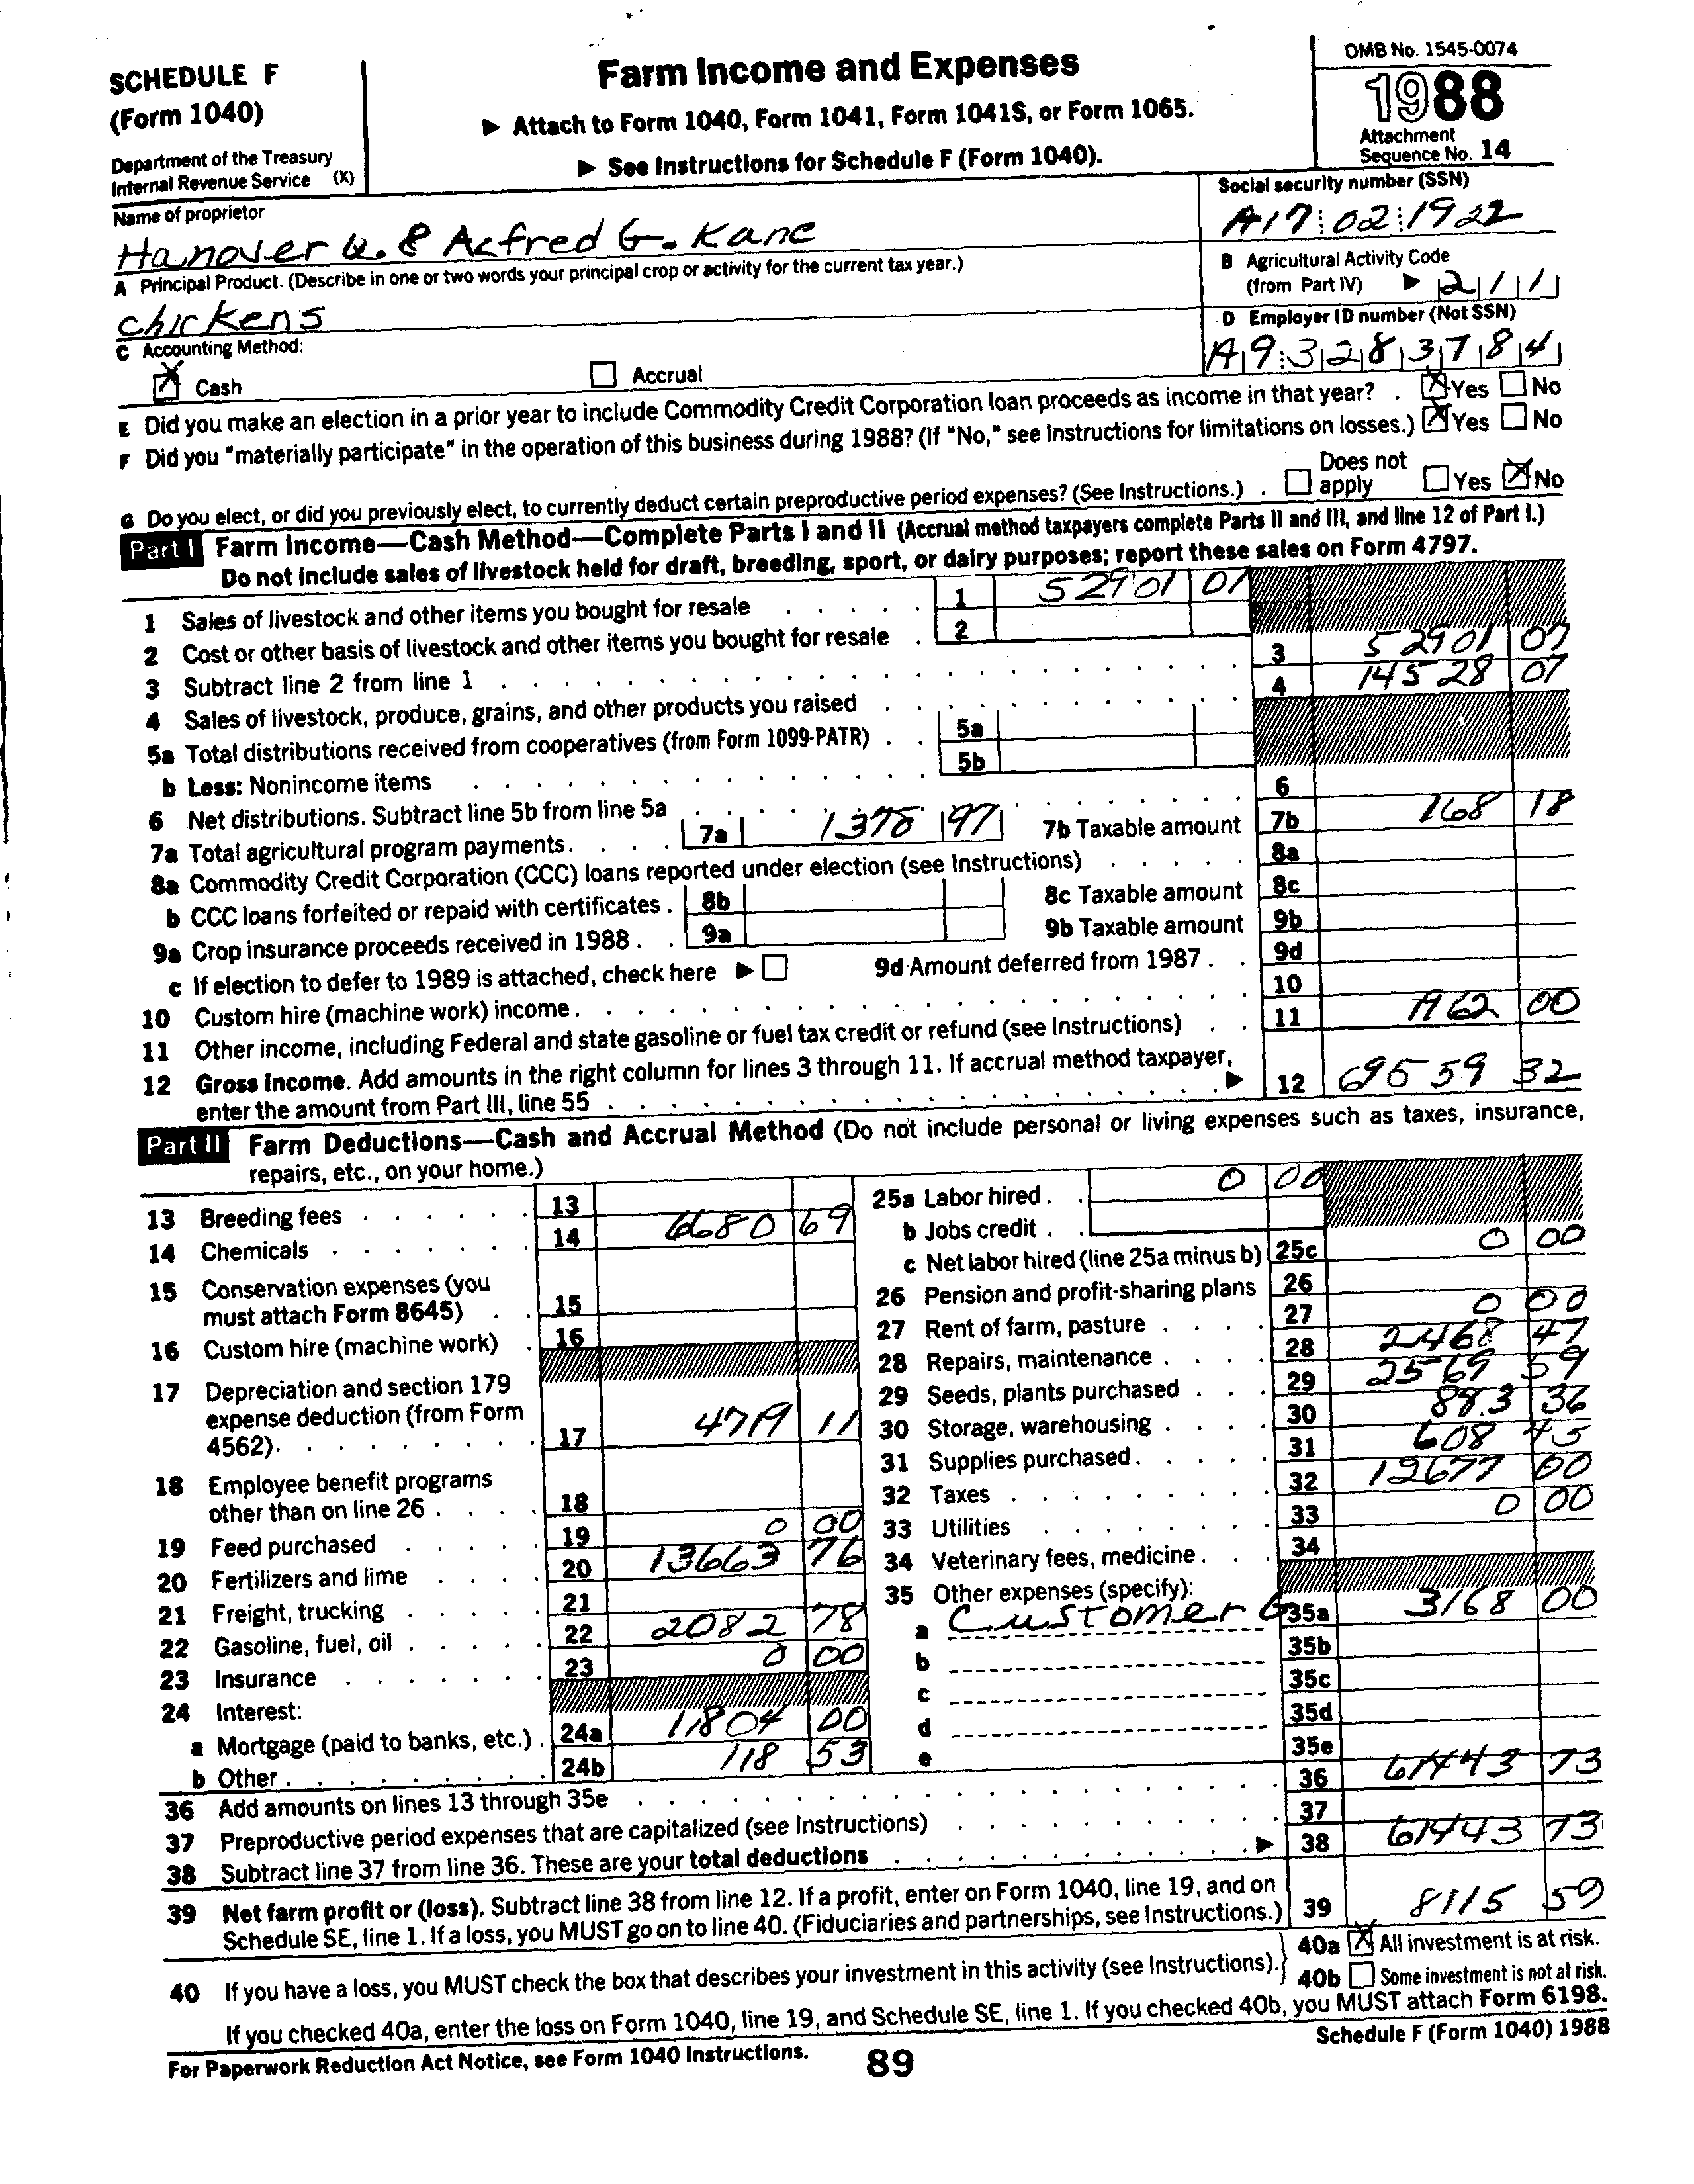 SCHEDULE F
(Form 1040)
Department of the Treasury
Internal Revenue Service (X)
Farm Income and Expenses
▶ Attach to Form 1040, Form 1041, Form 1041S, or Form 1065.
▶ See Instructions for Schedule F (Form 1040).
OMB No. 1545-0074
1988
Attachment
Sequence No. 14
Name of proprietor
Hanover W. & Alfred G. Kane
Social security number (SSN)
A17 02 1922
A Principal Product. (Describe in one or two words your principal crop or activity for the current tax year.)
chickens
B Agricultural Activity Code
(from Part IV) ▶ 2 1 1
C Accounting Method:
X Cash Accrual
D Employer ID number (Not SSN)
A 9 3 2 8 3 7 8 4
E Did you make an election in a prior year to include Commodity Credit Corporation loan proceeds as income in that year? . X Yes No
F Did you "materially participate" in the operation of this business during 1988? (If "No," see Instructions for limitations on losses.) X Yes No
G Do you elect, or did you previously elect, to currently deduct certain preproductive period expenses? (See Instructions.) . Does not apply Yes X No
Part I Farm Income—Cash Method—Complete Parts I and II (Accrual method taxpayers complete Parts II and III, and line 12 of Part I.)
Do not include sales of livestock held for draft, breeding, sport, or dairy purposes; report these sales on Form 4797.
1 Sales of livestock and other items you bought for resale 1 52901 07
2 Cost or other basis of livestock and other items you bought for resale 2
3 Subtract line 2 from line 1 3 52901 07
4 Sales of livestock, produce, grains, and other products you raised 4 14528 07
5a Total distributions received from cooperatives (from Form 1099-PATR) 5a
b Less: Nonincome items 5b
6 Net distributions. Subtract line 5b from line 5a 6
7a Total agricultural program payments. 7a 1378 97 7b Taxable amount 7b 168 18
8a Commodity Credit Corporation (CCC) loans reported under election (see Instructions) 8a
b CCC loans forfeited or repaid with certificates. 8b 8c Taxable amount 8c
9a Crop insurance proceeds received in 1988. 9a 9b Taxable amount 9b
c If election to defer to 1989 is attached, check here ▶ 9d Amount deferred from 1987. 9d
10 Custom hire (machine work) income. 10
11 Other income, including Federal and state gasoline or fuel tax credit or refund (see Instructions) 11 1962 00
12 Gross Income. Add amounts in the right column for lines 3 through 11. If accrual method taxpayer,
enter the amount from Part III, line 55 ▶ 12 69559 32
Part II Farm Deductions—Cash and Accrual Method (Do not include personal or living expenses such as taxes, insurance,
repairs, etc., on your home.)
13 Breeding fees 13
14 Chemicals 14 6680 69
15 Conservation expenses (you
must attach Form 8645) 15
16 Custom hire (machine work) 16
17 Depreciation and section 179
expense deduction (from Form
4562). 17 4719 11
18 Employee benefit programs
other than on line 26 18
19 Feed purchased 19 0 00
20 Fertilizers and lime 20 13663 76
21 Freight, trucking 21
22 Gasoline, fuel, oil 22 2082 78
23 Insurance 23 0 00
24 Interest:
a Mortgage (paid to banks, etc.) 24a 11804 00
b Other 24b 118 53
25a Labor hired. 0 00
b Jobs credit
c Net labor hired (line 25a minus b) 25c 0 00
26 Pension and profit-sharing plans 26
27 Rent of farm, pasture 27 0 00
28 Repairs, maintenance 28 2468 47
29 Seeds, plants purchased 29 2569 59
30 Storage, warehousing 30 883 36
31 Supplies purchased. 31 608 45
32 Taxes 32 12677 00
33 Utilities 33 0 00
34 Veterinary fees, medicine. 34
35 Other expenses (specify):
a Customer 35a 3168 00
b 35b
c 35c
d 35d
e 35e
36 Add amounts on lines 13 through 35e 36 61443 73
37 Preproductive period expenses that are capitalized (see Instructions) 37
38 Subtract line 37 from line 36. These are your total deductions ▶ 38 61443 73
39 Net farm profit or (loss). Subtract line 38 from line 12. If a profit, enter on Form 1040, line 19, and on
Schedule SE, line 1. If a loss, you MUST go on to line 40. (Fiduciaries and partnerships, see Instructions.) 39 8115 59
40 If you have a loss, you MUST check the box that describes your investment in this activity (see Instructions). 40a X All investment is at risk.
40b Some investment is not at risk.
If you checked 40a, enter the loss on Form 1040, line 19, and Schedule SE, line 1. If you checked 40b, you MUST attach Form 6198.
For Paperwork Reduction Act Notice, see Form 1040 Instructions. 89 Schedule F (Form 1040) 1988